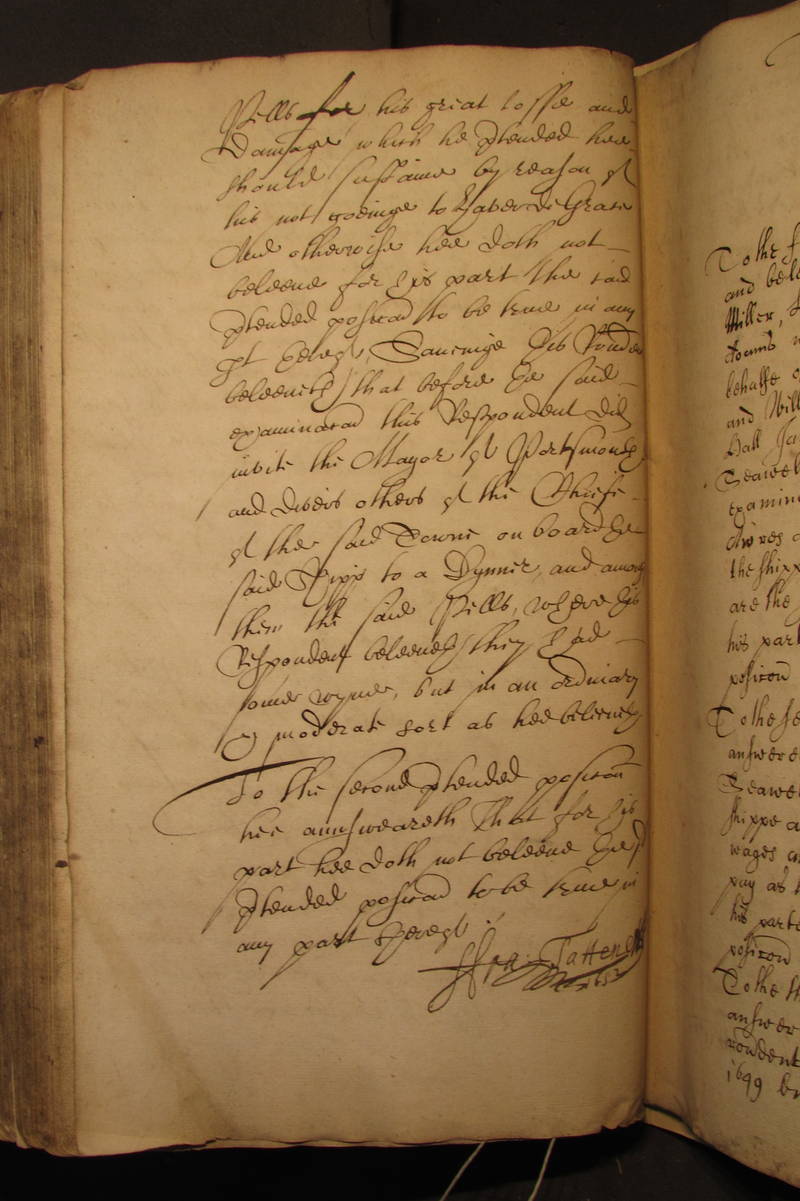 Pills for his great losse and
Damage which he p[re]tended hee
should sustaine by reason of
his not goeinge to Haver de Grace
And otherwise hee doth not
beleeve for his part the said
p[re]tended position to be true in any
pt thereof, Saveinge this Rondent
beleeveth that before the said
examinacon this Respondent did
invite the Mayor of Portsmouth
and divers others of the Chiefe
of the said Towne on board the
said Shipp to a Dynner, and amongst
them the said Pills, where this
Respondent beleeveth they had
some wyne, but in an ordinary
& moderate sort as hee beleeveth
To the second p[re]tended position
hee answeareth That for his
part hee doth not beleeve the sd
p[re]tended position to be true in
any part thereof
Fra: Tatten
To the f
and bele
Miller,
downe
behalfe o
and Will
Hall Ja
Seawel
examin
the shipp
are the
his part
position
To the se
answere
Seawe
shippe a
wages
pay as
his parte
position
To the th
answer
rondent
1649 b